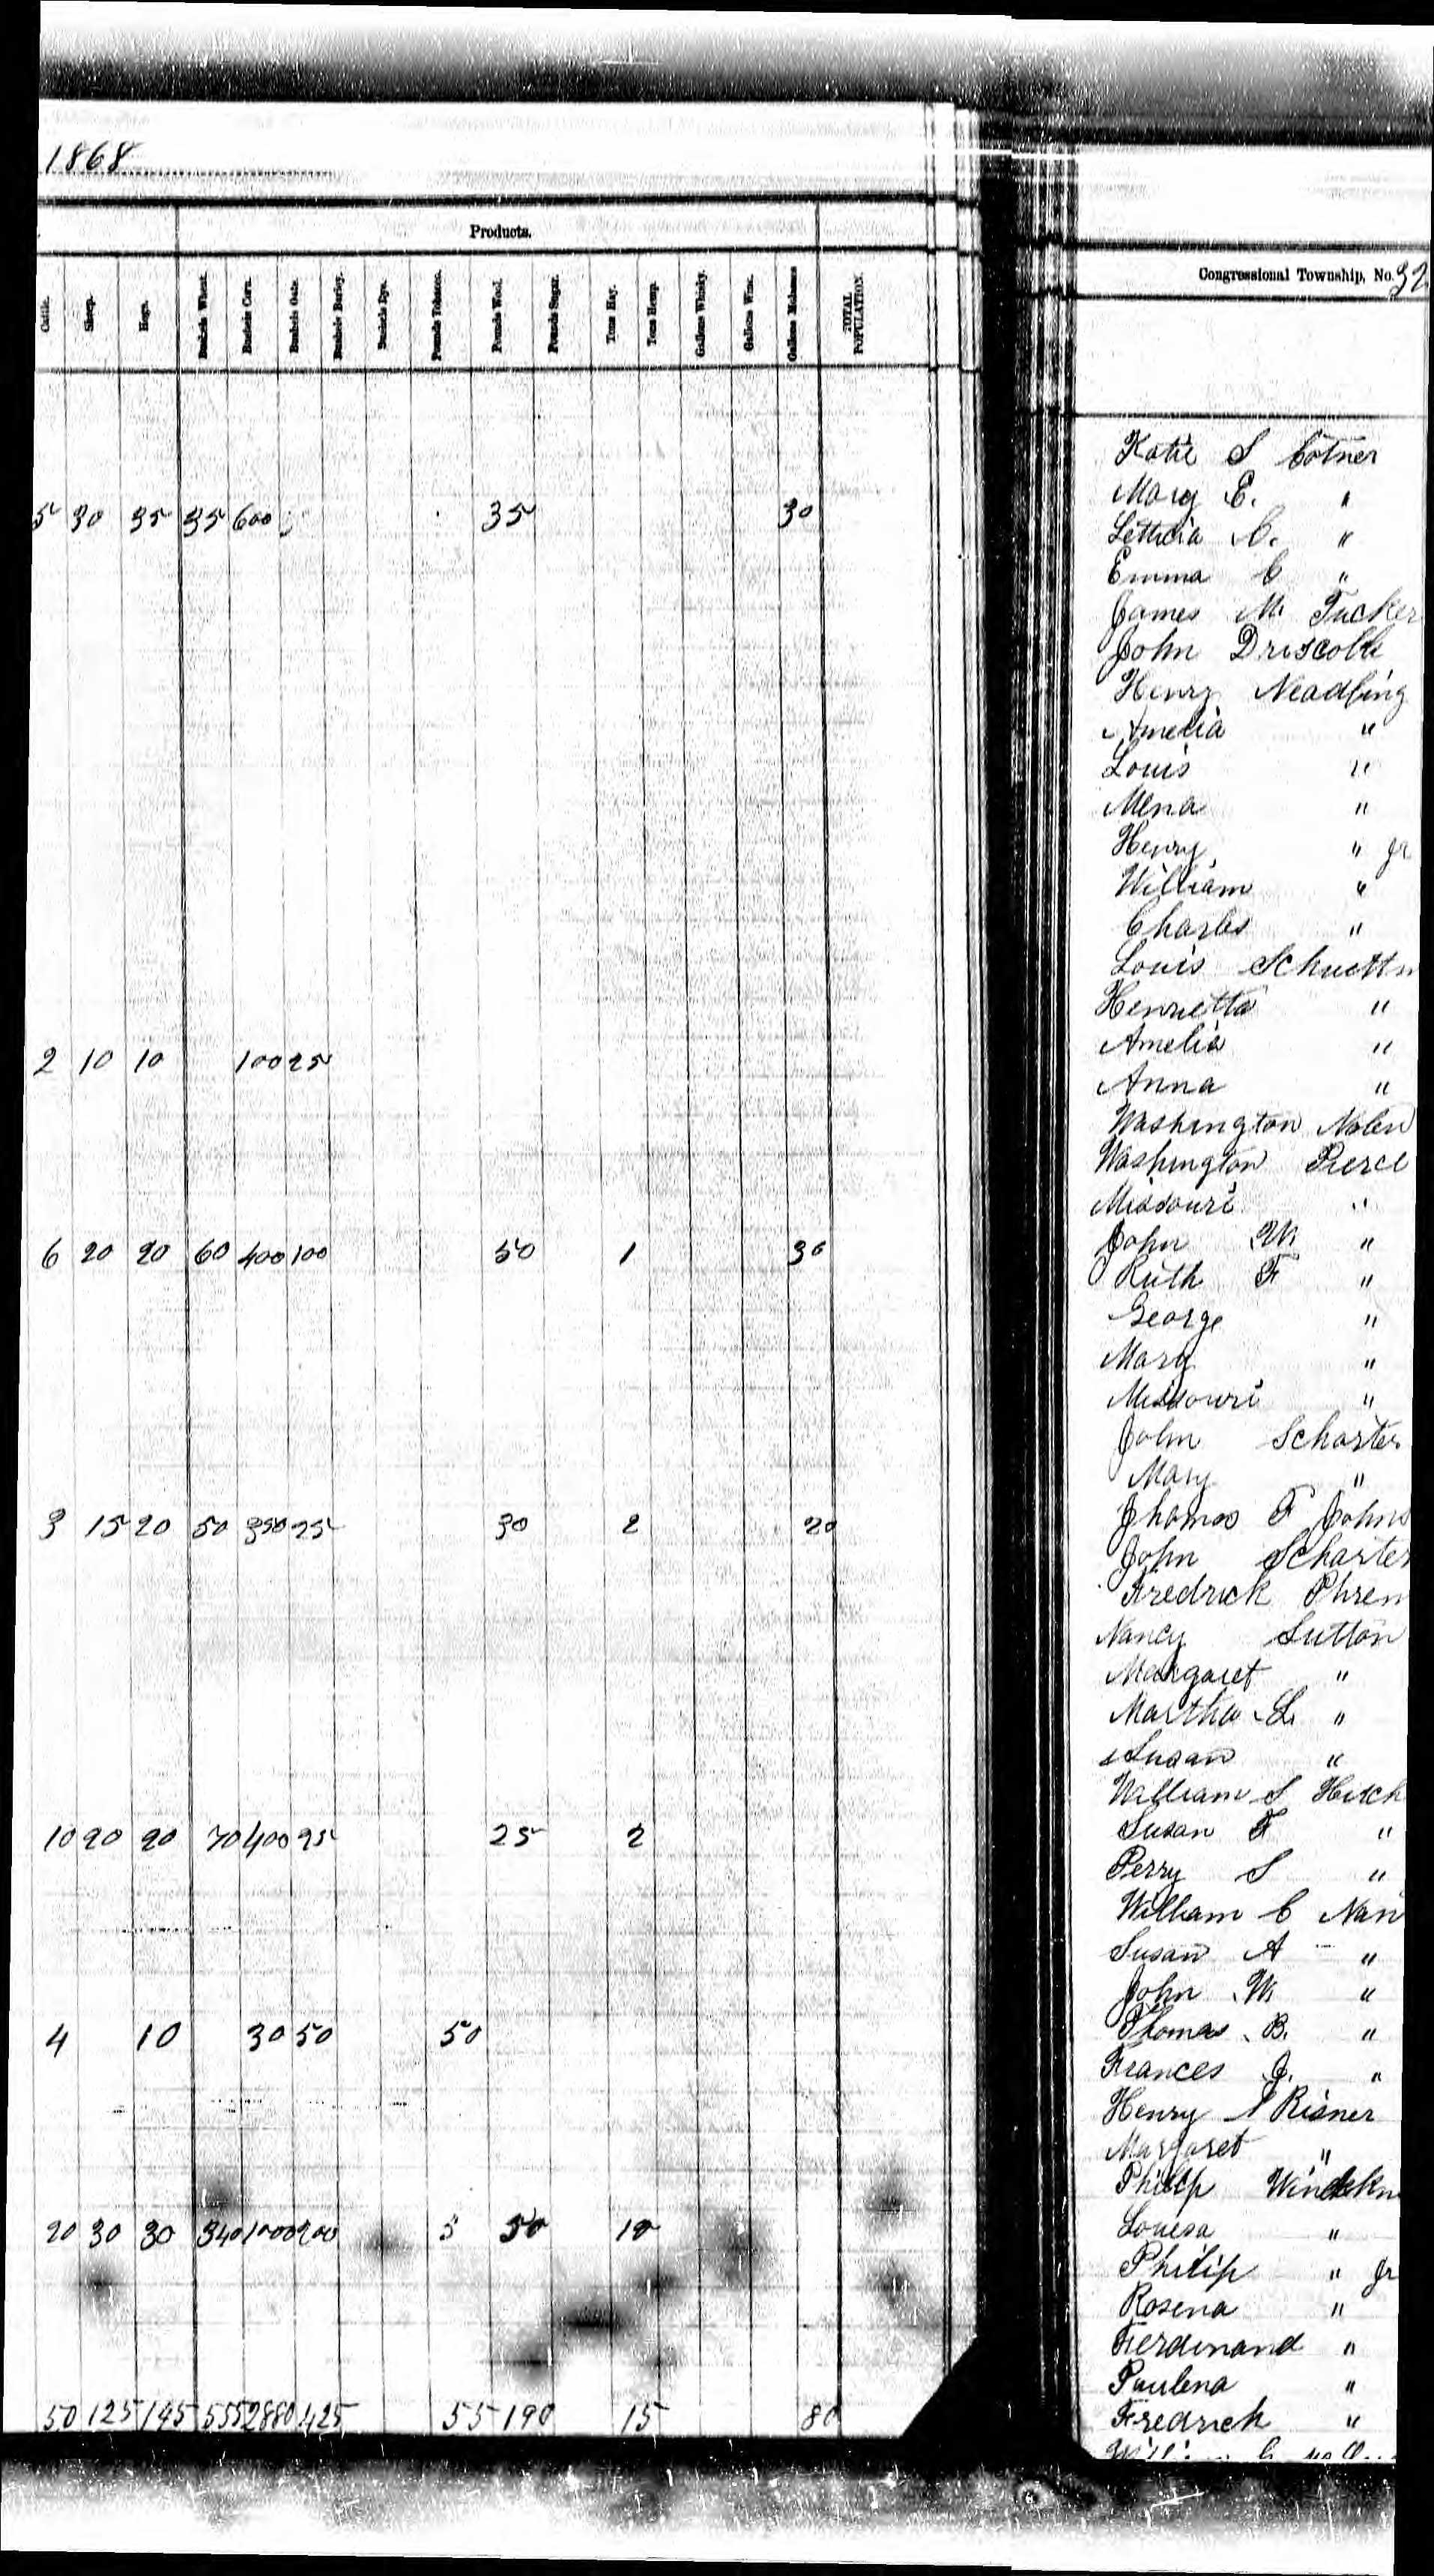 1868
Products.
Cattle.
Sheep.
Hogs.
Bushels Wheat.
Bushels Corn.
Bushels Oats.
Bushels Barley.
Bushels Rye.
Pounds Tobacco.
Pounds Wool.
Pounds Sugar.
Tons Hay.
Tons Hemp.
Gallons Whisky.
Gallons Wine.
Gallons Molasses
TOTAL POPULATION.
5 30 35 35 600 35 30
2 10 10 100 25
6 20 20 60 400 100 50 1 30
3 15 20 50 350 25 30 2 20
10 20 20 70 400 25 25 2
4 10 30 50 50
20 30 30 340 1000 200 5 50 10
50 125 145 555 2880 425 55 190 15 80
Congressional Township, No. 32
Katie S Cotner
Mary E. "
Letticia C. "
Emma C "
James M. Tucker
John Driscoll
Henry Neadling
Amelia "
Louis "
Mena "
Henry " Jr
William "
Charles "
Louis Schuettn
Henrietta "
Amelia "
Anna "
Washington Nolen
Washington Pierce
Missouri "
John W "
Ruth F "
George "
Mary "
Missouri "
John Scharter
Mary "
Thomas F Johns
John Scharter
Fredrick Phrem
Nancy Sutton
Margaret "
Martha L. "
Susan "
William S Hitch
Susan F "
Perry S "
William C Nan
Susan A "
John W. "
Thomas B. "
Frances J. "
Henry Risner
Margaret "
Philip
Louisa "
Philip " Jr
Rosena "
Ferdinand "
Paulena "
Fredrich "